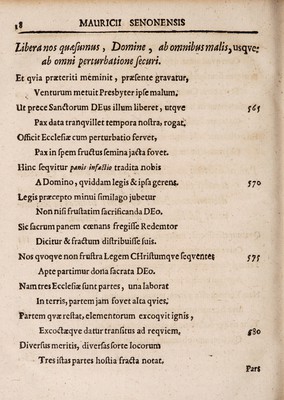 58 MAURICII SENONENSIS
Libera nos quæsumus, Domine, ab omnibus malis, usqve:
ab omni perturbatione securi.
Et qvia præteriti meminit, præsente gravatur,
Venturum metuit Presbyter ipse malum,
Ut prece Sanctorum DEus illum liberet, utqve 565
Pax data tranqvillet tempora nostra, rogat,
Officit Ecclesiæ cum perturbatio fervet,
Pax in spem fructus semina jacta fovet.
Hinc seqvitur panis infactio tradita nobis
A Domino, qviddam legis & ipsa gerens. 570
Legis præcepto minui similago jubetur
Non nisi frustatim sacrificanda DEo.
Sic sacrum panem cœnans fregisse Redemtor
Dicitur & fractum distribuisse suis.
Nos qvoqve non frustra Legem CHristumqve seqventes 575
Apte partimur dona sacrata DEo.
Nam tres Ecclesiæ sunt partes, una laborat
In terris, partem jam fovet alta qvies;
Partem qvæ restat, elementorum excoqvit ignis,
Excoctæqve datur transitus ad reqviem, 580
Diversus meritis, diversas sorte locorum
Tres istas partes hostia fracta notat.
Part